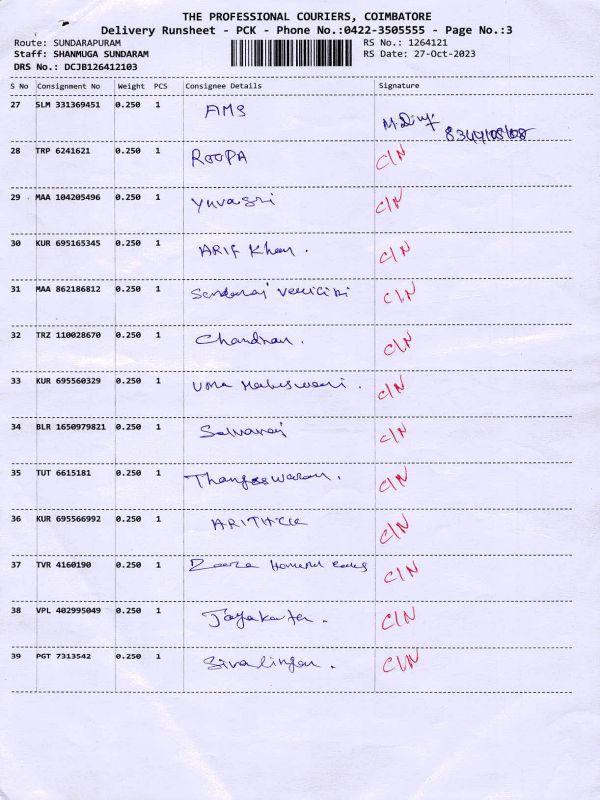 THE PROFESSIONAL COURIERS, COIMBATORE
Delivery Runsheet - PCK - Phone No.:0422-3505555 - Page No.:3
Route: SUNDARAPURAM RS No.: 1264121
Staff: SHANMUGA SUNDARAM RS Date: 27-Oct-2023
DRS No.: DCJB126412103
S No Consignment No Weight PCS Consignee Details Signature
27 SLM 331369451 0.250 1 AMS
28 TRP 6241621 0.250 1 ROOPA C/N
29 MAA 104205496 0.250 1 Yuvasri C/N
30 KUR 695165345 0.250 1 ARIF Khan . C/N
31 MAA 862186812 0.250 1 C/N
32 TRZ 110028670 0.250 1 Chandran . C/N
33 KUR 695560329 0.250 1 Uma Maheswari . C/N
34 BLR 1650979821 0.250 1 Selvaraj C/N
35 TUT 6615181 0.250 1 C/N
36 KUR 695566992 0.250 1 C/N
37 TVR 4160190 0.250 1 C/N
38 VPL 402995049 0.250 1 C/N
39 PGT 7313542 0.250 1 Sivalingam . C/N